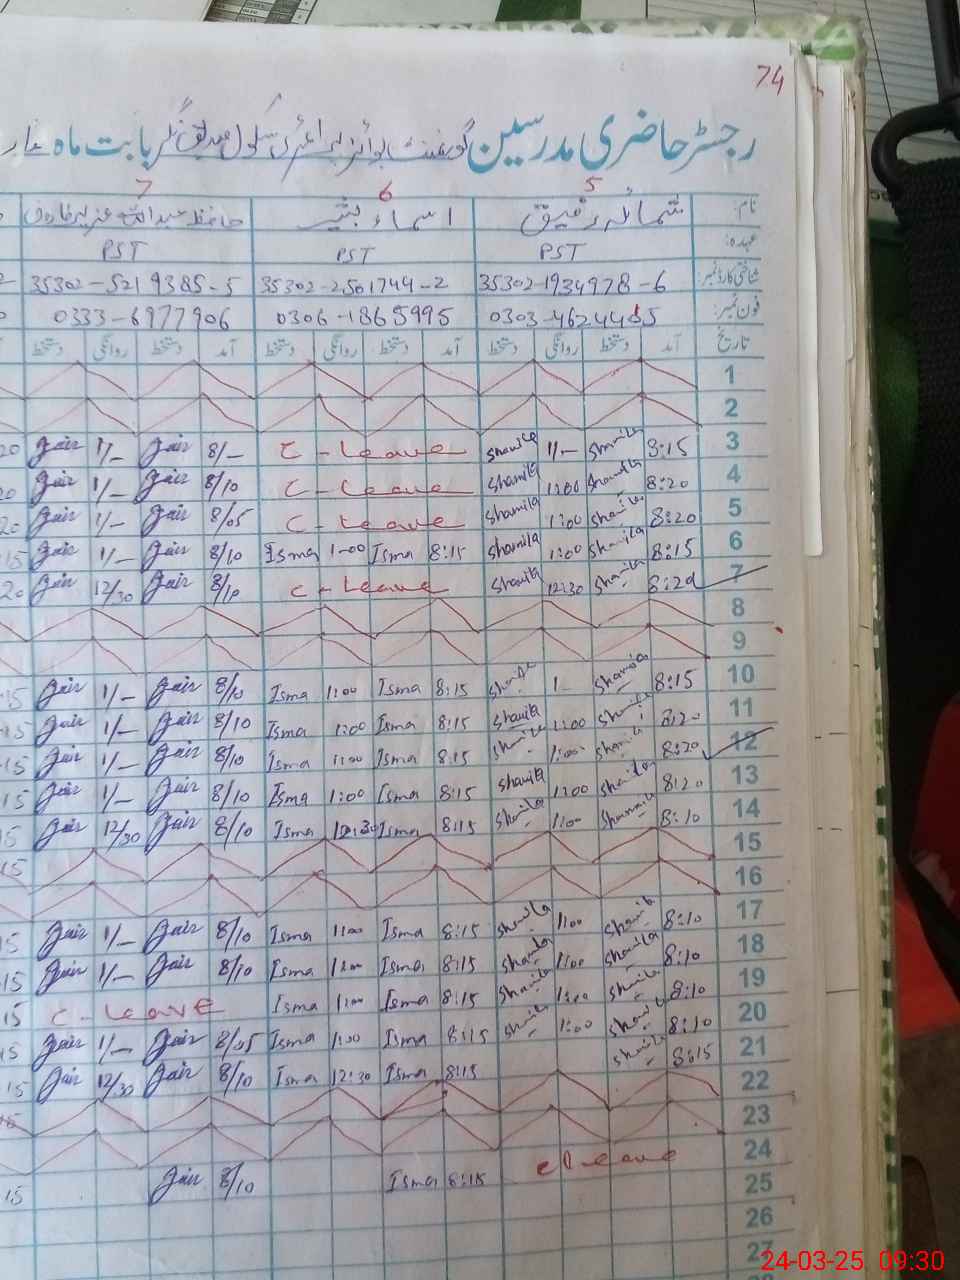 74
رجسٹر حاضری مدرسین گورنمنٹ بوائز پرائمری سکول صدیق نگر بابت ماہ مار
5 6 7
نام: شمائلہ رفیق اسماء بشیر حافظ
عہدہ: PST PST PST
شناختی کارڈ نمبر: 35302-1934978-6 35302-2501744-2 35302-5219385-5
فون نمبر: 0303-4624405 0306-1865995 0333-6977906
تاریخ آمد دستخط روانگی دستخط آمد دستخط روانگی دستخط آمد دستخط روانگی دستخط
1
2
3 8:15 Shamila 1/- Shamila C-Leave 8/- Jair 1/- Jair 20
4 8:20 Shamila 1:00 Shamila C-Leave 8/10 Jair 1/- Jair 20
5 8:20 Shamila 1:00 Shamila C-Leave 8/05 Jair 1/- Jair 20
6 8:15 Shamila 1:00 Shamila 8:15 Isma 1:00 Isma 8/10 Jair 1/- Jair 15
7 8:20 Shamila 12:30 Shamila C-Leave 8/10 Jair 12/30 Jair 20
8
9
10 8:15 Shamila 1- Shamila 8:15 Isma 1:00 Isma 8/10 Jair 1/- Jair 15
11 8:20 Shamila 1:00 Shamila 8:15 Isma 1:00 Isma 8/10 Jair 1/- Jair 15
12 8:20 Shamila 1:00 Shamila 8:15 Isma 1:00 Isma 8/10 Jair 1/- Jair 15
13 8:20 Shamila 1:00 Shamila 8:15 Isma 1:00 Isma 8/10 Jair 1/- Jair 15
14 8:10 Shamila 1:00 Shamila 8:15 Isma 12:30 Isma 8/10 Jair 12/30 Jair 15
15 15
16
17 8:10 Shamila 1:00 Shamila 8:15 Isma 1:00 Isma 8/10 Jair 1/- Jair 15
18 8:10 Shamila 1:00 Shamila 8:15 Isma 1:00 Isma 8/10 Jair 1/- Jair 15
19 8:10 Shamila 1:00 Shamila 8:15 Isma 1:00 Isma C-Leave 15
20 8:10 Shamila 1:00 Shamila 8:15 Isma 1:00 Isma 8/05 Jair 1/- Jair 15
21 8:15 Shamila 8:15 Isma 12:30 Isma 8/10 Jair 12/30 Jair 15
22
23
24 c Leave 8:15 Isma 8/10 Jair 15
25
26
27
24-03-25 09:30